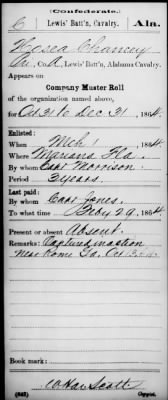 (Confederate.)
C Lewis' Batt'n, Cavalry. Ala.
Hosea Chancey
Co. A, Lewis' Batt'n, Alabama Cavalry.
Appears on
Company Muster Roll
of the organization named above,
for Oct 31 to Dec 31, 1864.
Enlisted:
When Mch 1, 1864.
Where Mariana Fla.
By whom Capt Morrison
Period 3 years.
Last paid:
By whom Capt Jones.
To what time Feby 29, 1864.
Present or absent Absent.
Remarks: Captured in action
near Rome Ga. Oct 13
Book mark:
Scott
(642) Copyist.